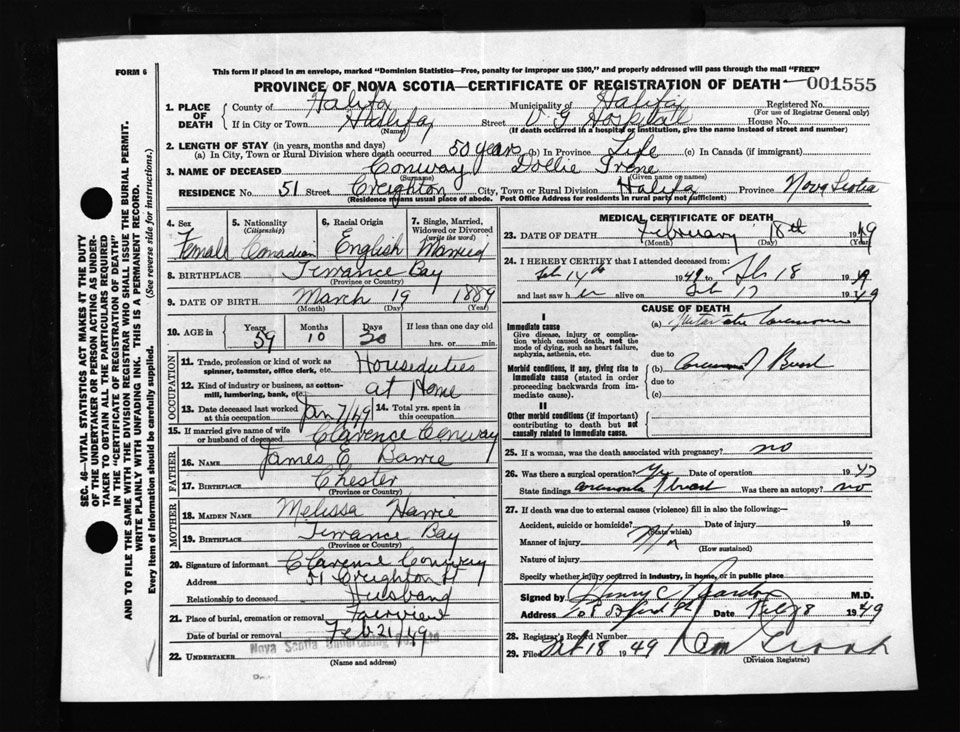 FORM 6
This form if placed in an envelope, marked "Dominion Statistics—Free, penalty for improper use $300," and properly addressed will pass through the mail "FREE"
PROVINCE OF NOVA SCOTIA—CERTIFICATE OF REGISTRATION OF DEATH 001555
1. PLACE OF DEATH
County of Halifax Municipality of Halifax Registered No.
(For use of Registrar General only)
If in City or Town Halifax Street V G Hospital House No.
(Name) (If death occurred in a hospital or institution, give the name instead of street and number)
2. LENGTH OF STAY (in years, months and days)
(a) In City, Town or Rural Division where death occurred 50 years (b) In Province Life (c) In Canada (if immigrant)
3. NAME OF DECEASED Conway Dollie Irene
(Surname) (Given name or names)
RESIDENCE No. 51 Street Creighton City, Town or Rural Division Halifax Province Nova Scotia
(Residence means usual place of abode. Post Office Address for residents in rural parts not sufficient)
4. Sex Female
5. Nationality (Citizenship) Canadian
6. Racial Origin English
7. Single, Married, Widowed or Divorced (write the word) Married
8. BIRTHPLACE Terrance Bay
(Province or Country)
9. DATE OF BIRTH March 19 1889
(Month) (Day) (Year)
10. AGE in Years Months Days If less than one day old
59 10 30 hrs. or min.
OCCUPATION
11. Trade, profession or kind of work as spinner, teamster, office clerk, etc. Houseduties
12. Kind of industry or business, as cotton-mill, lumbering, bank, etc. at Home
13. Date deceased last worked at this occupation Jan 7/49 14. Total yrs. spent in this occupation
15. If married give name of wife or husband of deceased Clarence Conway
FATHER
16. NAME James E
17. BIRTHPLACE Chester
(Province or Country)
MOTHER
18. MAIDEN NAME Melissa
19. BIRTHPLACE Terrance Bay
(Province or Country)
20. Signature of informant Clarence Conway
Address 51 Creighton St
Relationship to deceased Husband
21. Place of burial, cremation or removal Fairview
Date of burial or removal Feb 21/49
22. UNDERTAKER Nova Scotia Undertaking
(Name and address)
MEDICAL CERTIFICATE OF DEATH
23. DATE OF DEATH February 18th 1949
(Month) (Day) (Year)
24. I HEREBY CERTIFY that I attended deceased from:
Feb 14th 1949 to Feb 18 1949
and last saw her alive on Feb 17 1949
CAUSE OF DEATH
I
Immediate cause
Give disease, injury or complication which caused death, not the mode of dying, such as heart failure, asphyxia, asthenia, etc.
(a)
due to
Morbid conditions, if any, giving rise to immediate cause (stated in order proceeding backwards from immediate cause).
(b) Breast
due to
(c)
II
Other morbid conditions (if important) contributing to death but not causally related to immediate cause.
25. If a woman, was the death associated with pregnancy? no
26. Was there a surgical operation? yes Date of operation 1947
State findings breast Was there an autopsy? no
27. If death was due to external causes (violence) fill in also the following:—
Accident, suicide or homicide? Date of injury 19
(State which)
Manner of injury
(How sustained)
Nature of injury
Specify whether injury occurred in industry, in home, or in public place
Signed by Henry C M.D.
Address Date Feb 18 1949
28. Registrar's Record Number
29. Filed 18 1949
(Division Registrar)
SEC. 46—VITAL STATISTICS ACT MAKES IT THE DUTY
OF THE UNDERTAKER OR PERSON ACTING AS UNDER-
TAKER TO OBTAIN ALL THE PARTICULARS REQUIRED
IN THE "CERTIFICATE OF REGISTRATION OF DEATH"
AND TO FILE THE SAME WITH THE DIVISION REGISTRAR WHO SHALL ISSUE THE BURIAL PERMIT.
WRITE PLAINLY WITH UNFADING INK. THIS IS A PERMANENT RECORD.
Every item of information should be carefully supplied. (See reverse side for instructions.)